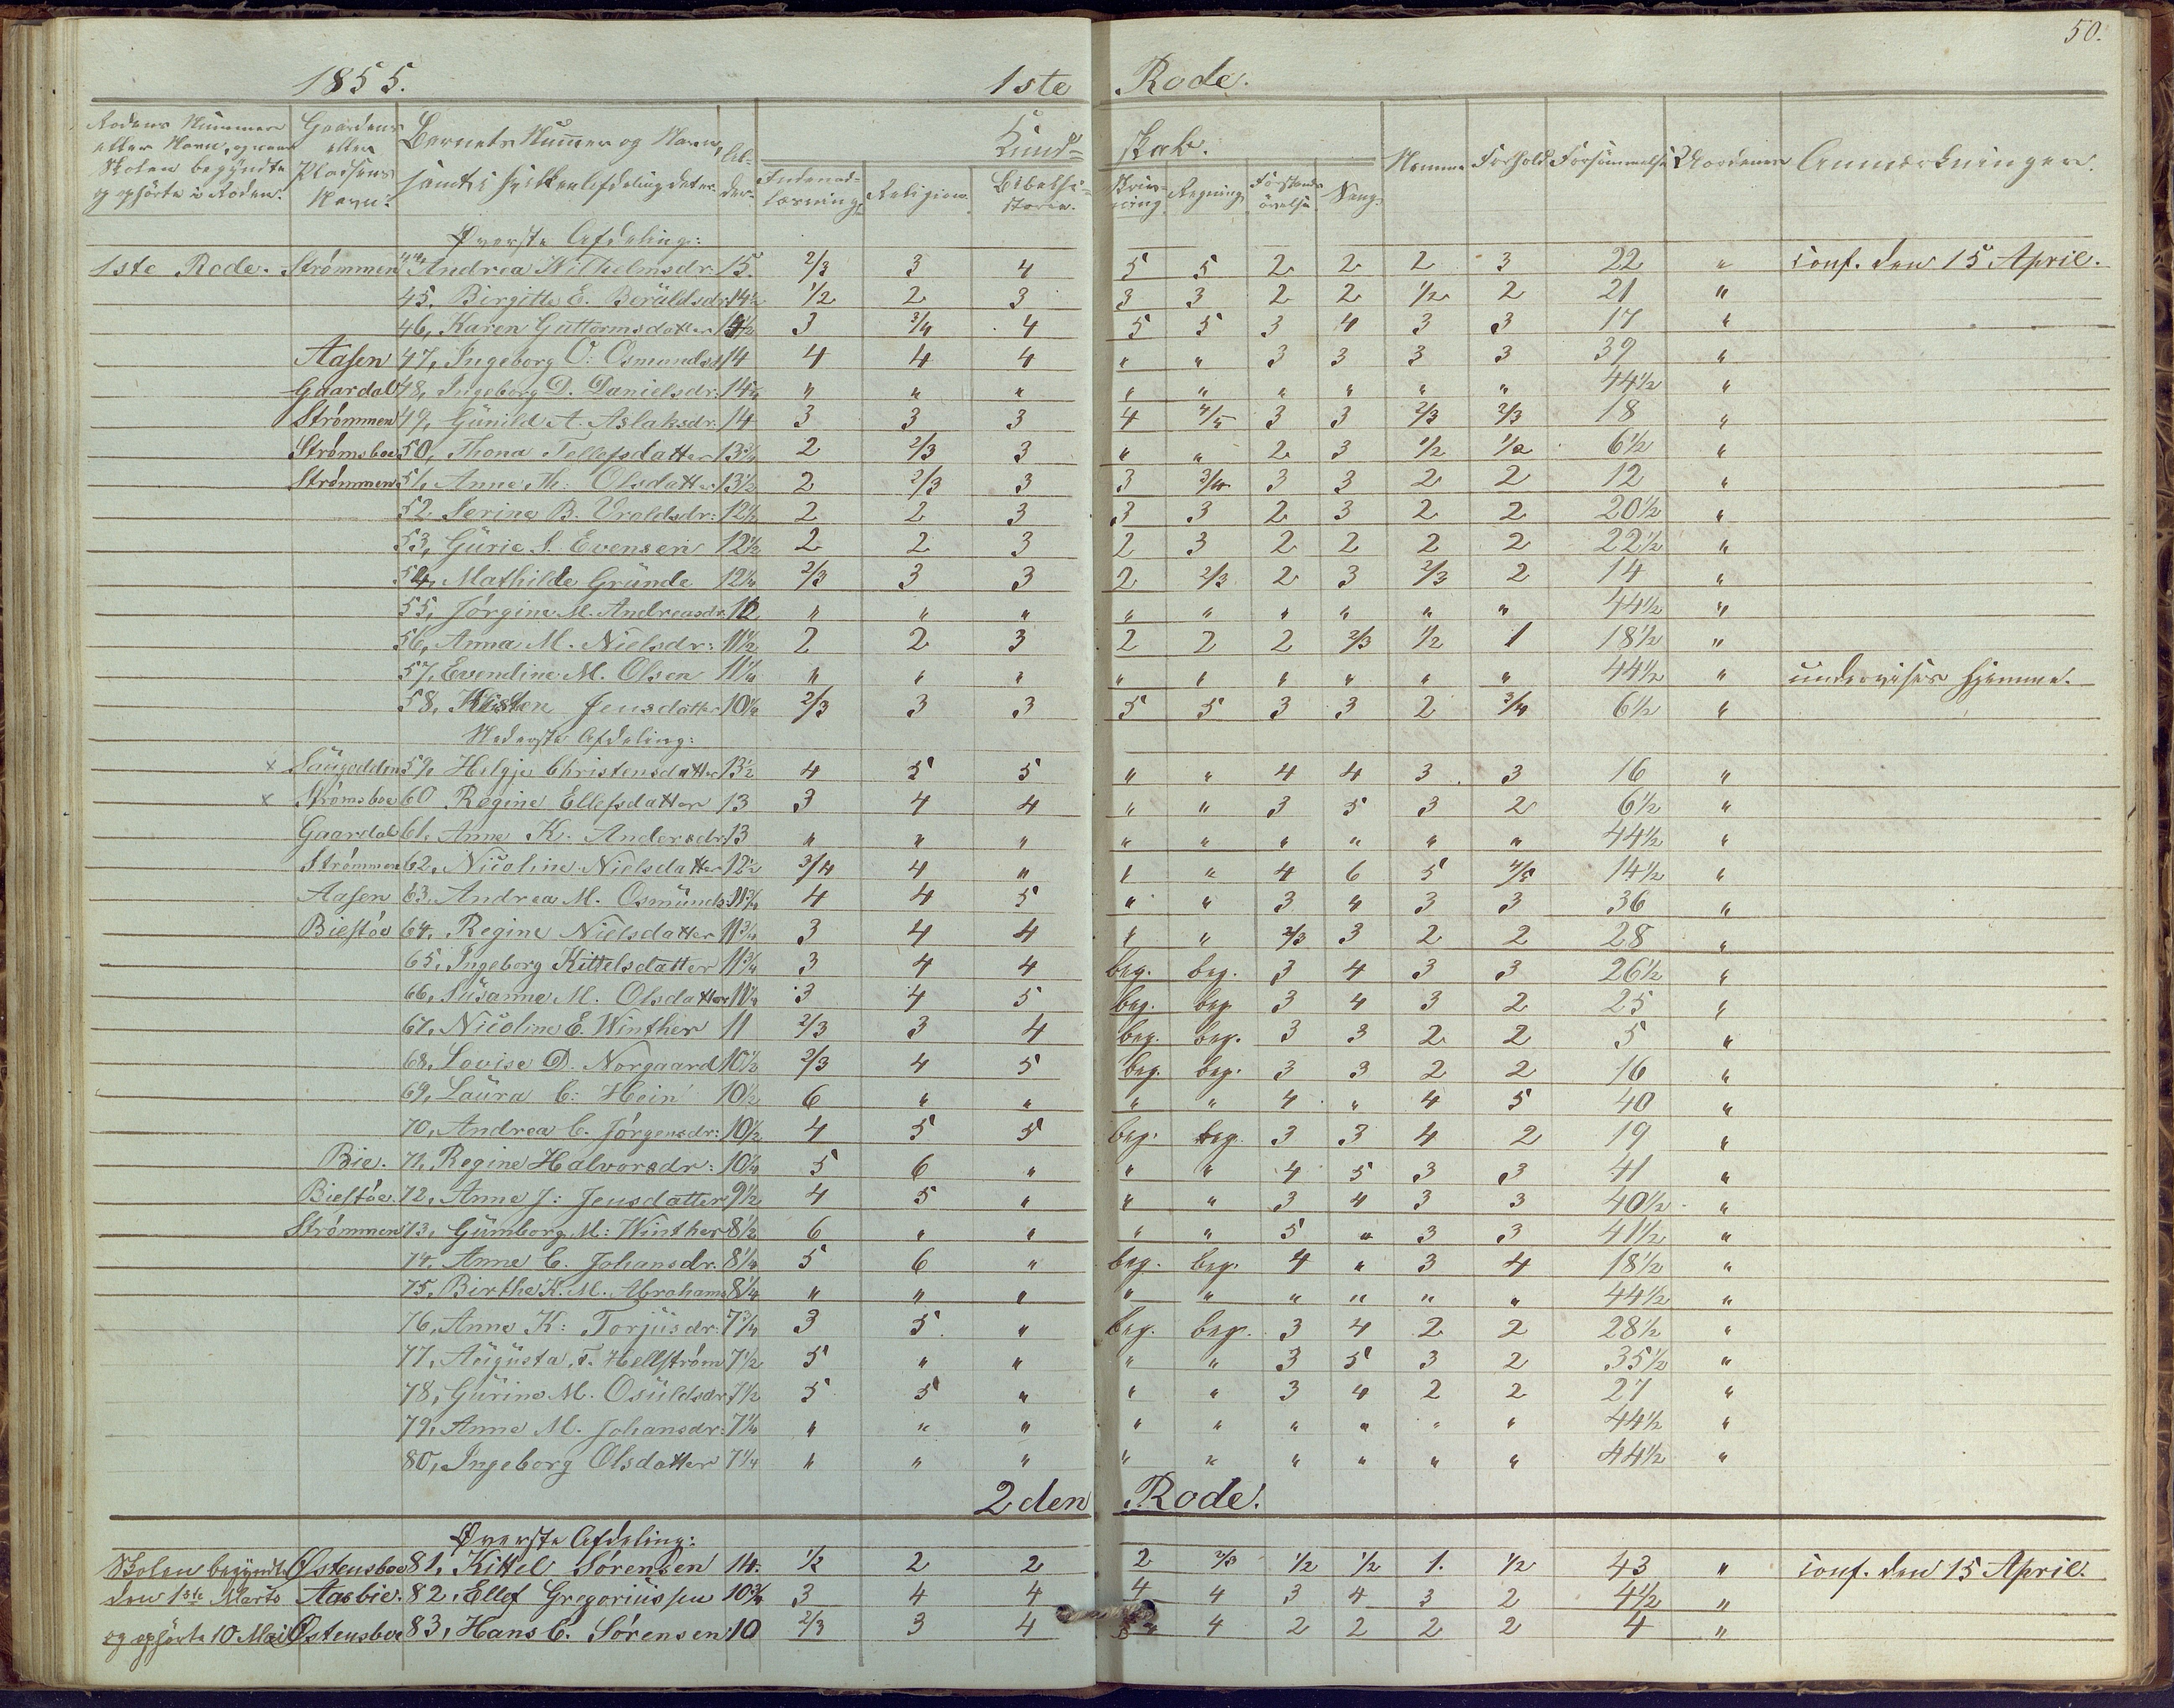 50.
1855. 1ste Rode.
Rodens Nummer eller Navn, og naar Skolen begyndte og ophørte i Roden. Gaardens eller Pladsens Navn. Barnets Numer og Navn, samt i hvilken Afdeling det er. Alder. Kundskab. Nemme Forhold Forsømmelse Anmærkninger.
Indenadlæsning Religion. Bibelhistorie. Skrivning Regning Forstandsøvelse Sang.
Øverste Afdeling:
1ste Rode. Strømmen 44, Andrea Wilhelmsdr: 15. 2/3 3 4 5 5 2 2 2 3 22 " conf. den 15 April.
45, Birgitte E. 14½ 1/2 2 3 3 3 2 2 1/2 2 21 "
46, Karen Guttormsdatter 14½ 3 3/4 4 5 5 3 4 3 3 17 "
Aasen 47, Ingeborg O: Osmundsd 14 4 4 4 " " 3 3 3 3 39 "
Gaardal 48, Ingeborg D. Danielsdr: 14¼ " " " " " " " " " 44½ "
Strømmen 49, Günild A. Aslaksdr: 14 3 3 3 4 4/5 3 3 2/3 2/3 18 "
Strømsboe 50, Thona Tellefsdatter 13¾ 2 2/3 3 " " 2 3 1/2 1/2 6½ "
Strømmen 51, Anne M: Olsdatter 13½ 2 2/3 3 3 3/4 3 3 2 2 12 "
52 Serine B. Uroldsdr: 12½ 2 2 3 3 3 2 3 2 2 20½ "
53, Gürie S. Evensen 12½ 2 2 3 2 3 2 2 2 2 22½ "
54, Mathilde Gründe 12¼ 2/3 3 3 2 2/3 2 3 2/3 2 14 "
55, Jørgine M. Andreasdr. 12 " " " " " " " " " 44½ "
56, Anna M. Nielsdr: 11½ 2 2 3 2 2 2 2/3 1/2 1 18½ "
57, Evendine M. Olsen 11¼ " " " " " " " " " 44½ " undervises hjemme.
58, Kirsten Jensdatter 10¼ 2/3 3 3 5 5 3 3 2 3/4 6½ "
Nederste Afdeling:
x Saugodden 59, Helgje Christensdatter 13½ 4 5 5 " " 4 4 3 3 16 "
x Strømsboe 60 Regine Ellefsdatter 13 3 4 4 " " 3 5 3 2 6½ "
Gaardal 61. Anne K. Andersdr: 13 " " " " " " " " " 44½ "
Strømmen 62, Nicoline Nielsdatter 12½ 3/4 4 " " " 4 6 5 4/5 14½ "
Aasen 63. Andrea M. Osmünds: 11¾ 4 4 5 " " 3 " 3 3 36 "
Biestøe 64, Regine Nielsdatter 11¾ 3 4 4 " " 2/3 3 2 2 28 "
65, Ingeborg Kittelsdatter 11¾ 3 4 4 beg. beg. 3 4 3 3 26½ "
66, Süsanne M. Olsdatter 11¼ 3 4 5 beg. beg 3 4 3 2 25 "
67, Nicoline E. Winther 11 2/3 3 4 beg. beg. 3 3 2 2 5 "
68, Lovise D. Norgaard 10½ 2/3 4 5 beg. beg. 3 3 2 2 16 "
69, Laüra C: Hein 10½ 6 " " " " 4 " 4 5 40 "
70, Andrea C. Jörgensdr: 10½ 4 5 5 beg. beg. 3 3 4 2 19 "
Bie. 71, Regine Halvorsdr: 10¼ 5 6 " " " 4 5 3 3 41 "
Biestøe. 72, Anne J: Jensdatter 9½ 4 5 " " " 3 4 3 3 40½ "
Strömmen 73, Gümborg M: Winther 8½ 6 " " " " 5 " 3 3 41½ "
74. Anne C. Johansdr. 8½ 5 6 " beg. beg. 4 " 3 4 18½ "
75. Birthe K. M. Abrahams 8¼ " " " " " " " " " 44½ "
76, Anne K: Torjüsdr: 7¾ 3 5 " beg. beg. 3 4 2 2 28½ "
77, Aügüsta, F. Hellström 7½ 5 " " " " 3 5 3 2 35½ "
78, Gürine M. Osüldsdr 7½ 5 5 " " " 3 4 2 2 27 "
79, Anne M. Johansdr: 7¼ " " " " " " " " " 44½ "
80, Ingeborg Olsdatter 7¼ " " " " " " " " " 44½ "
2den Rode.
Øverste Afdeling:
Skolen begyndte Østensboe 81, Kittel Sørensen 14. 1/2 2 2 2 2/3 1/2 1/2 1. 1/2 43 " conf. den 15 April.
den 1ste Marts Aasbie. 82, Ellef Gregoriüssen 10¾ 3 4 4 4 4 3 4 3 2 4½ "
og ophørte 10 Mai Østensboe 83, Hans C. Sørensen 10 2/3 3 4 4 2 2 2 2 4 "